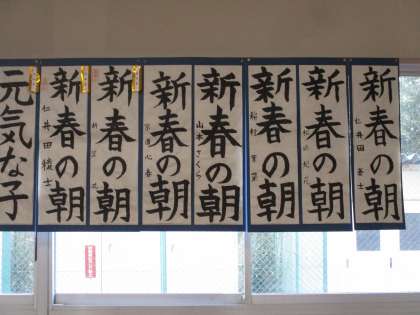 新春の朝
仁井田
新春の朝
新春の朝
新春の朝
山本さくら
新春の朝
新春の朝
新春の朝
仁井田
元気な子